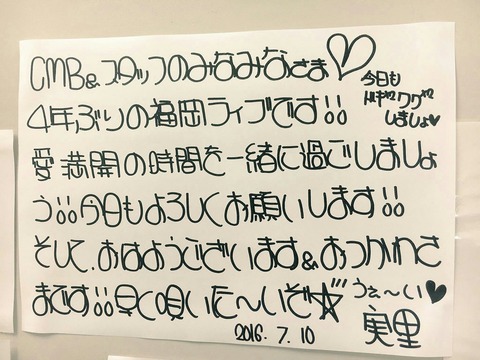 CMB&スタッフのみなみなさま♡
今日も
ドキ²ワク²
しましょ♥
4年ぶりの福岡ライブです!!
愛満開の時間を一緒に過ごしましょ
う!!今日もよろしくお願いします!!
そして、おはようございます&おつかれさ
まです!!早く唄いた〜いぞ☆!!!うぇ〜い♥
2016.7.10 実里